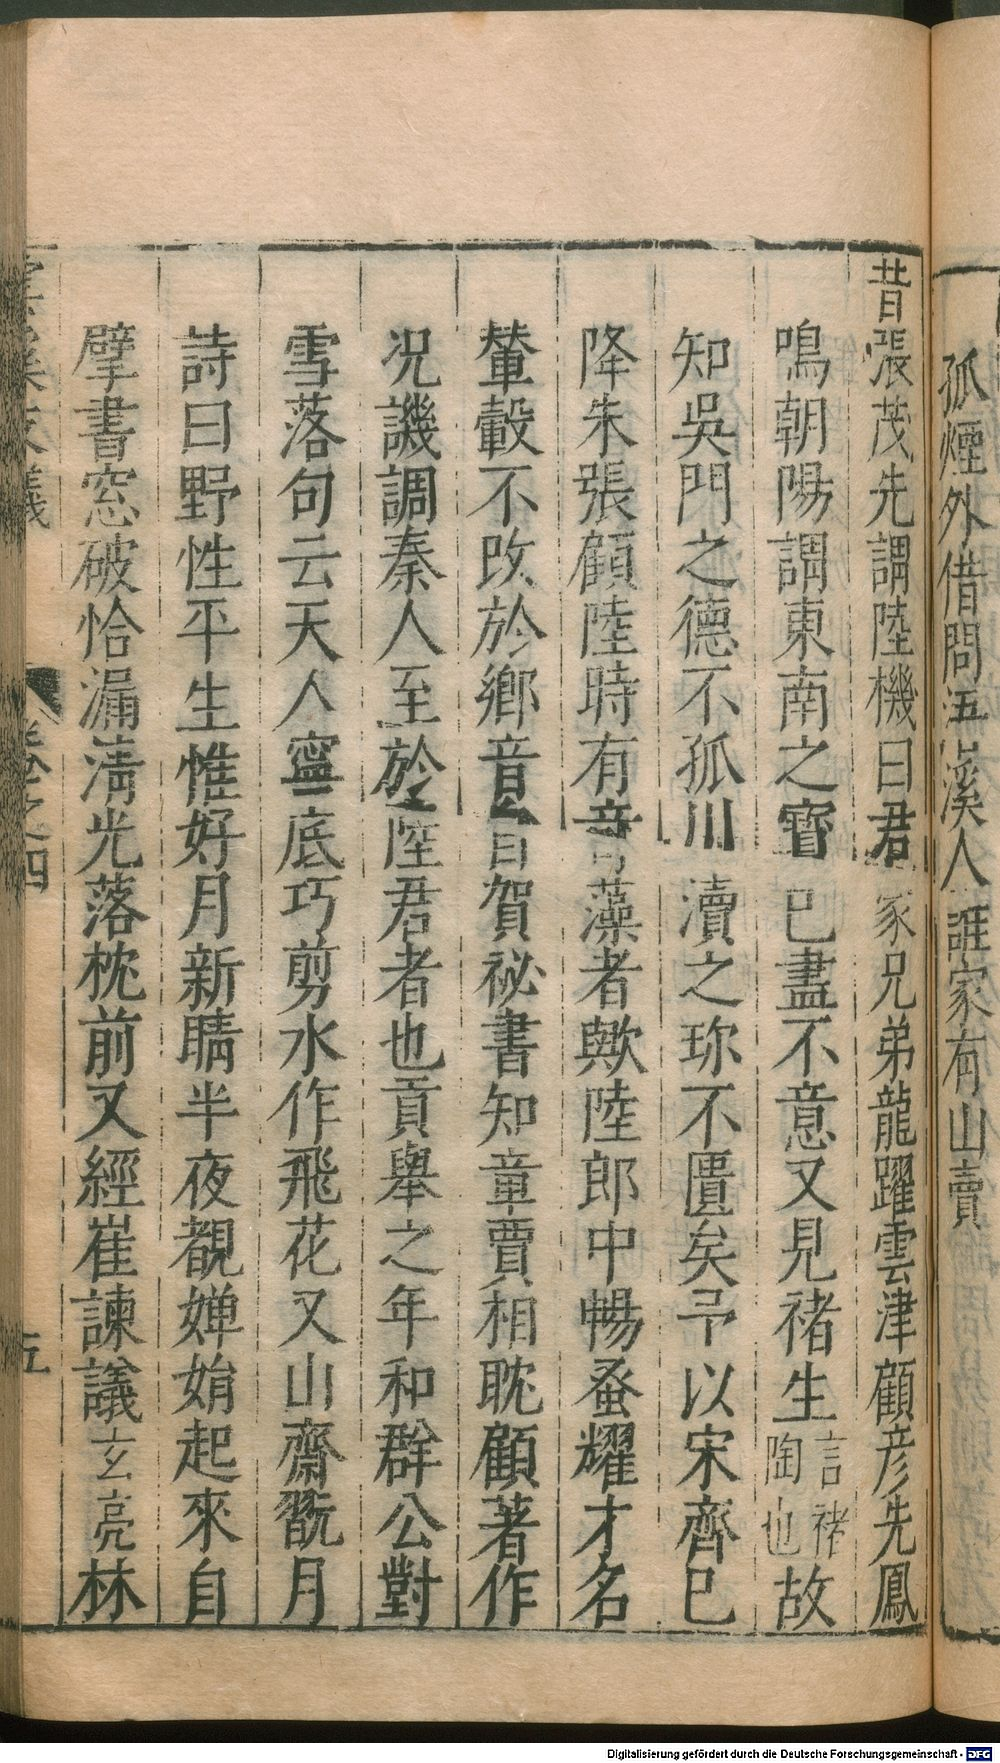 孤煙外借問五溪人誰家有山賣
昔張茂先謂陸機曰君家兄弟龍躍雲津顧彦先鳳
鳴朝陽謂東南之寶已盡不意又見褚生言褚陶也故
知吳門之德不孤川瀆之珎不匱矣予以宋齊已
降朱張顧陸時有竒藻者歟陸郎中暢蚤耀才名
輦轂不改於鄉音自賀祕書知章賈相耽顧著作
况譏調秦人至於陸君者也貢舉之年和群公對
雪落句云天人寧底巧剪水作飛花又山齋翫月
詩曰野性平生惟好月新晴半夜覩嬋娟起來自
擘書窓破恰漏淸光落枕前又經崔諫議玄亮林
雲溪友議
卷之四
五
Digitalisierung gefördert durch die Deutsche Forschungsgemeinschaft - DFG